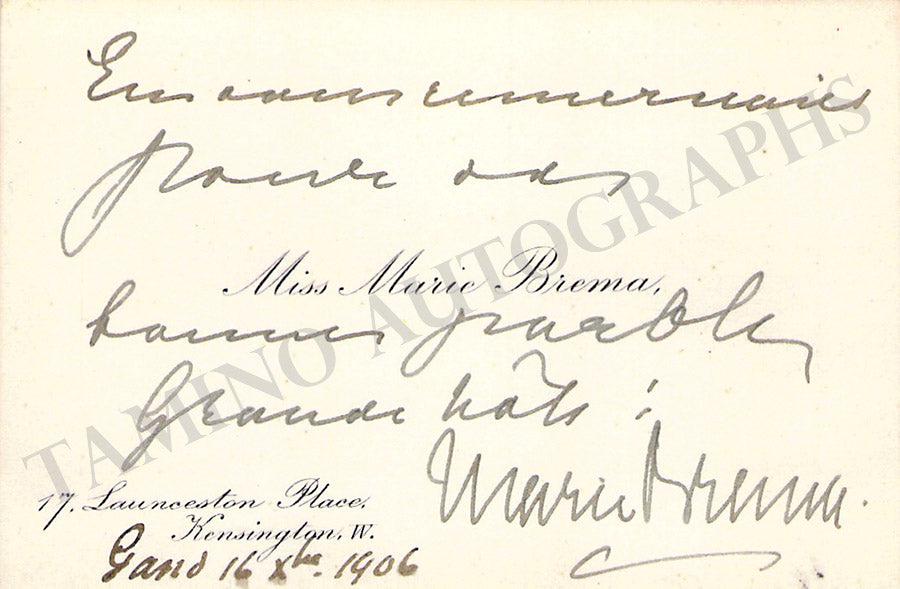 En vous remerciant
pour vos
Miss Marie Brema,
bonnes paroles
Grande hâte !
Marie Brema.
17, Launceston Place,
Kensington, W.
Gand 16 Xbre. 1906
TAMINO AUTOGRAPHS